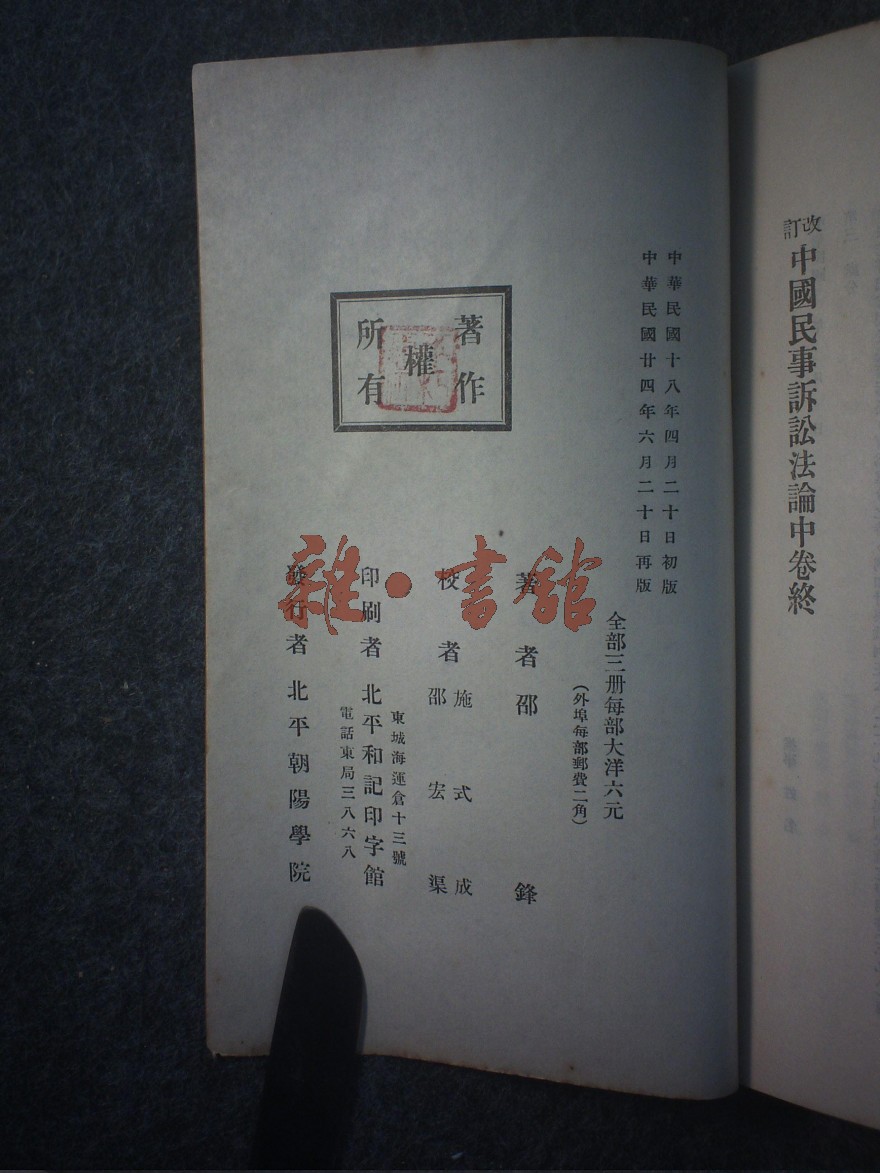 改訂中國民事訴訟法論中卷終
中華民國十八年四月二十日初版
中華民國廿四年六月二十日再版
全部三册每部大洋六元
（外埠每部郵費二角）
著者邵鋒
校者施式成
邵宏渠
東城海運倉十三號
印刷者北平和記印字館
電話東局三八六八
發行者北平朝陽學院
著作
權
所有
雜·書館